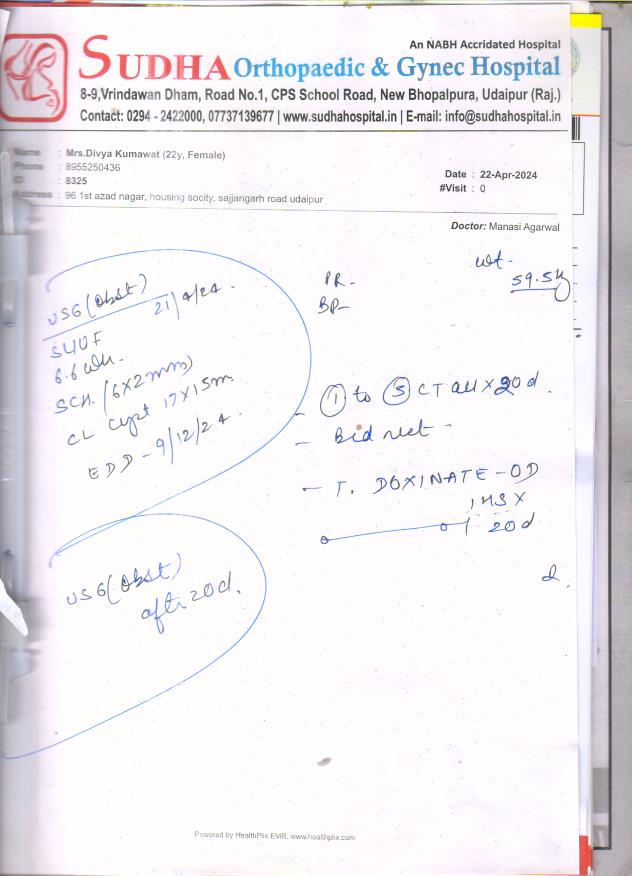 An NABH Accridated Hospital
SUDHA Orthopaedic & Gynec Hospital
8-9,Vrindawan Dham, Road No.1, CPS School Road, New Bhopalpura, Udaipur (Raj.)
Contact: 0294 - 2422000, 07737139677 | www.sudhahospital.in | E-mail: info@sudhahospital.in
Name : Mrs.Divya Kumawat (22y, Female)
Phone : 8955250436
ID : 8325
Address : 96 1st azad nagar, housing socity, sajjangarh road udaipur
Date : 22-Apr-2024
#Visit : 0
Doctor: Manasi Agarwal
wt.
59.5
PR-
BP-
USG (Obst)
21/4/24.
SLIUF
6.6 wk.
SCH. (6x2mm)
CL Cyst 17x15m
EDD - 9/12/24.
- ① to ⑤ CT all x 20d.
- Bid rest -
- T. DOXINATE - OD
1 HS x
20d
USG (Obst)
after 20d.
Powered by HealthPlix EMR. www.healthplix.com